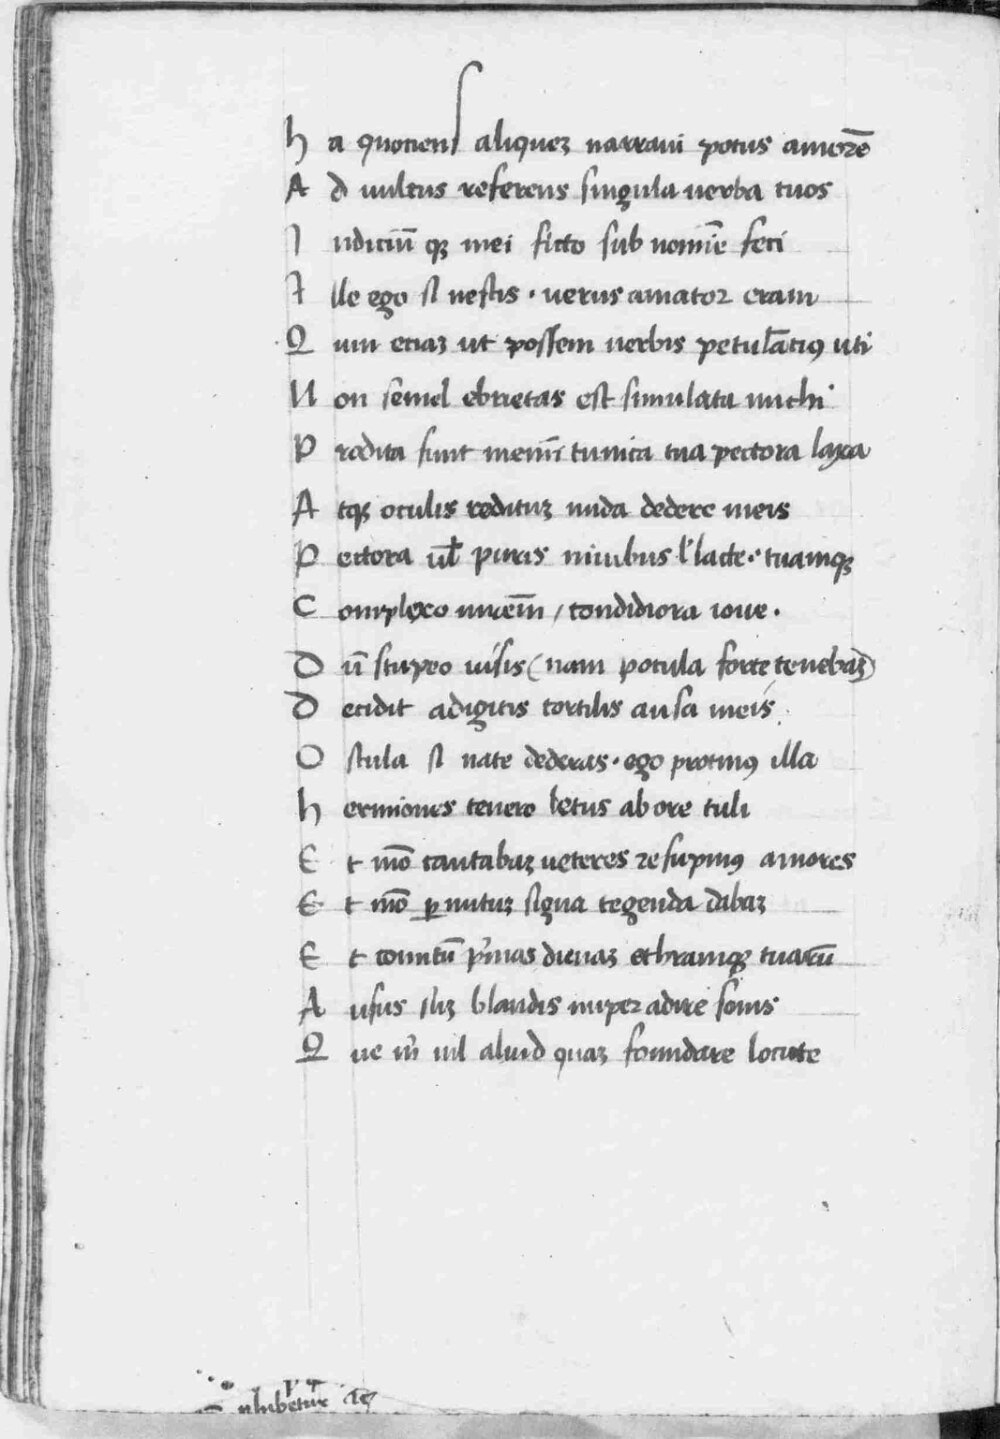 h a quotiens aliquez narravi potus amorē
A d vultus referens singula verba tuos
I ndiciū qꝫ mei ficto sub nomīe feci
I lle ego si nescis · verus amator eram
Q uin etiaz ut possem verbis petulātiꝰ uti
N on semel ebrietas est simulata michi
P rodita sunt meminī tunica tua pectora laxa
A tqꝫ oculis redituz nuda dedere meis
P ectora vl̄ puris nivibus l' lacte · tuamqꝫ
C omplexo mrēm / condidiora iove ·
D ū stupeo visis (nam pocula forte tenebaz)
D ecidit adigitis tortilis ansa meis
O scula si nate dederas · ego protinꝰ illa
h ermiones tenero letus ab ore tuli
E t mō cantabaz veteres resupinꝰ amores
E t mō ꝑ nutuz signa tegenda dabaz
E t comitū p'mas clienaz ethramqꝫ tuarū
A usus suz blandis nuper adire sonis
Q ue m̄ nil aliud quaz formidare locute